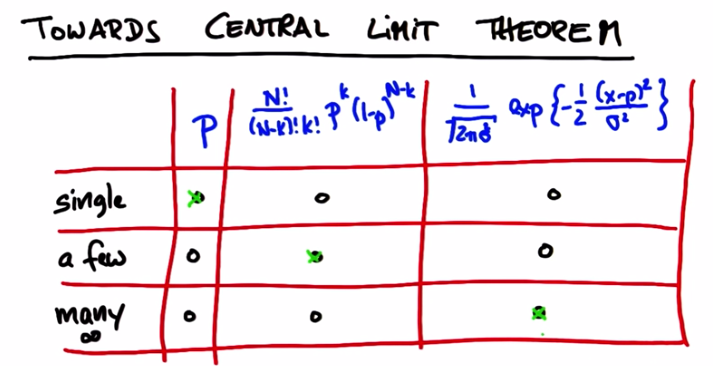 TOWARDS CENTRAL LIMIT THEOREM
P N!/((N-k)! k!) p^k (1-p)^(N-k) 1/√(2πσ²) exp{-1/2 (x-μ)²/σ²}
single
a few
many
∞